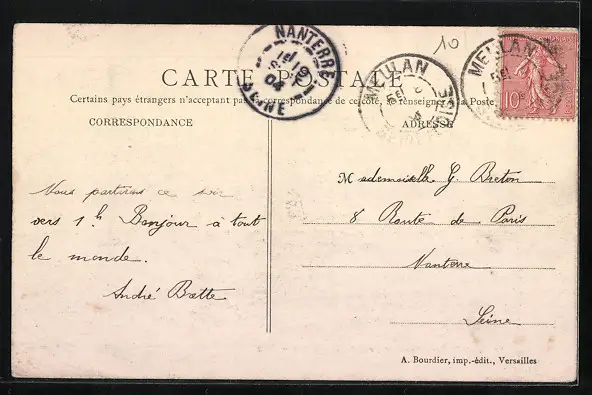 10
CARTE POSTALE
Certains pays étrangers n'acceptant pas la correspondance de ce côté, se renseigner à la Poste
CORRESPONDANCE
ADRESSE
NANTERRE
SEINE
MEULAN
MEULAN
10c
Nous partirons ce soir
vers 1h Bonjour à tout
le monde.
André Batte
Mademoiselle G. Breton
8 Route de Paris
Nanterre
Seine
A. Bourdier, imp.-édit., Versailles